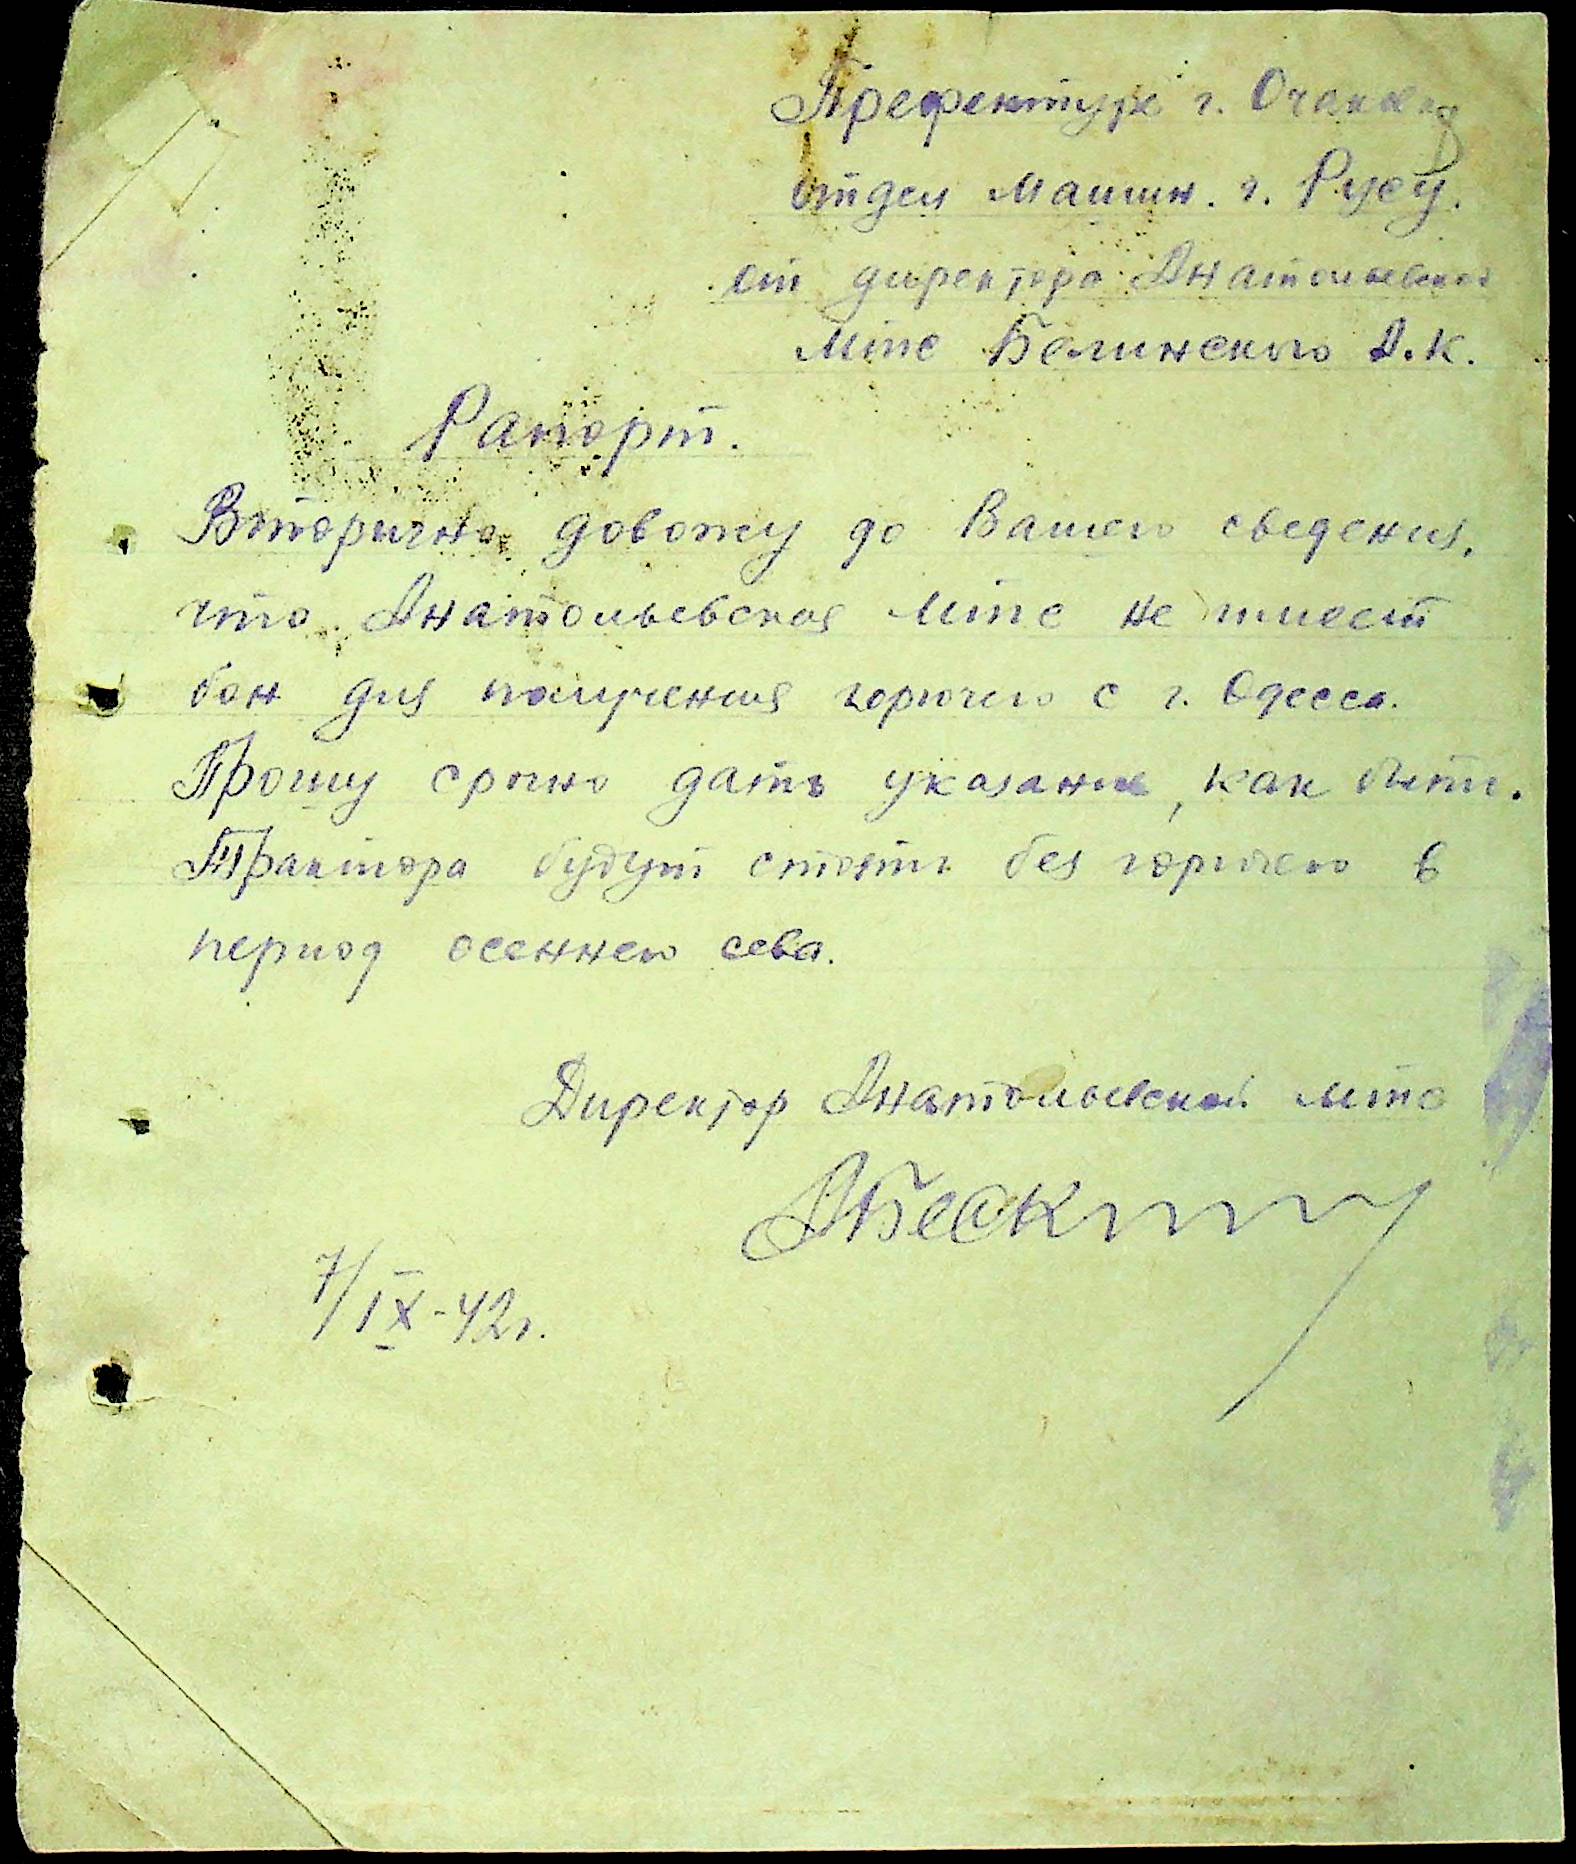 Префектуре г. Очакова
отдел Машин. г. Русу.
от директора Анатольевской
Мтс Белинского А.К.
Рапорт.
Вторично довожу до Вашего сведения,
что Анатольевская Мтс не имеет
бон для получения горючего с г. Одесса.
Прошу срочно дать указание, как быть.
Трактора будут стоять без горючего в
период осеннего сева.
Директор Анатольевской мтс
7/IX-42г.